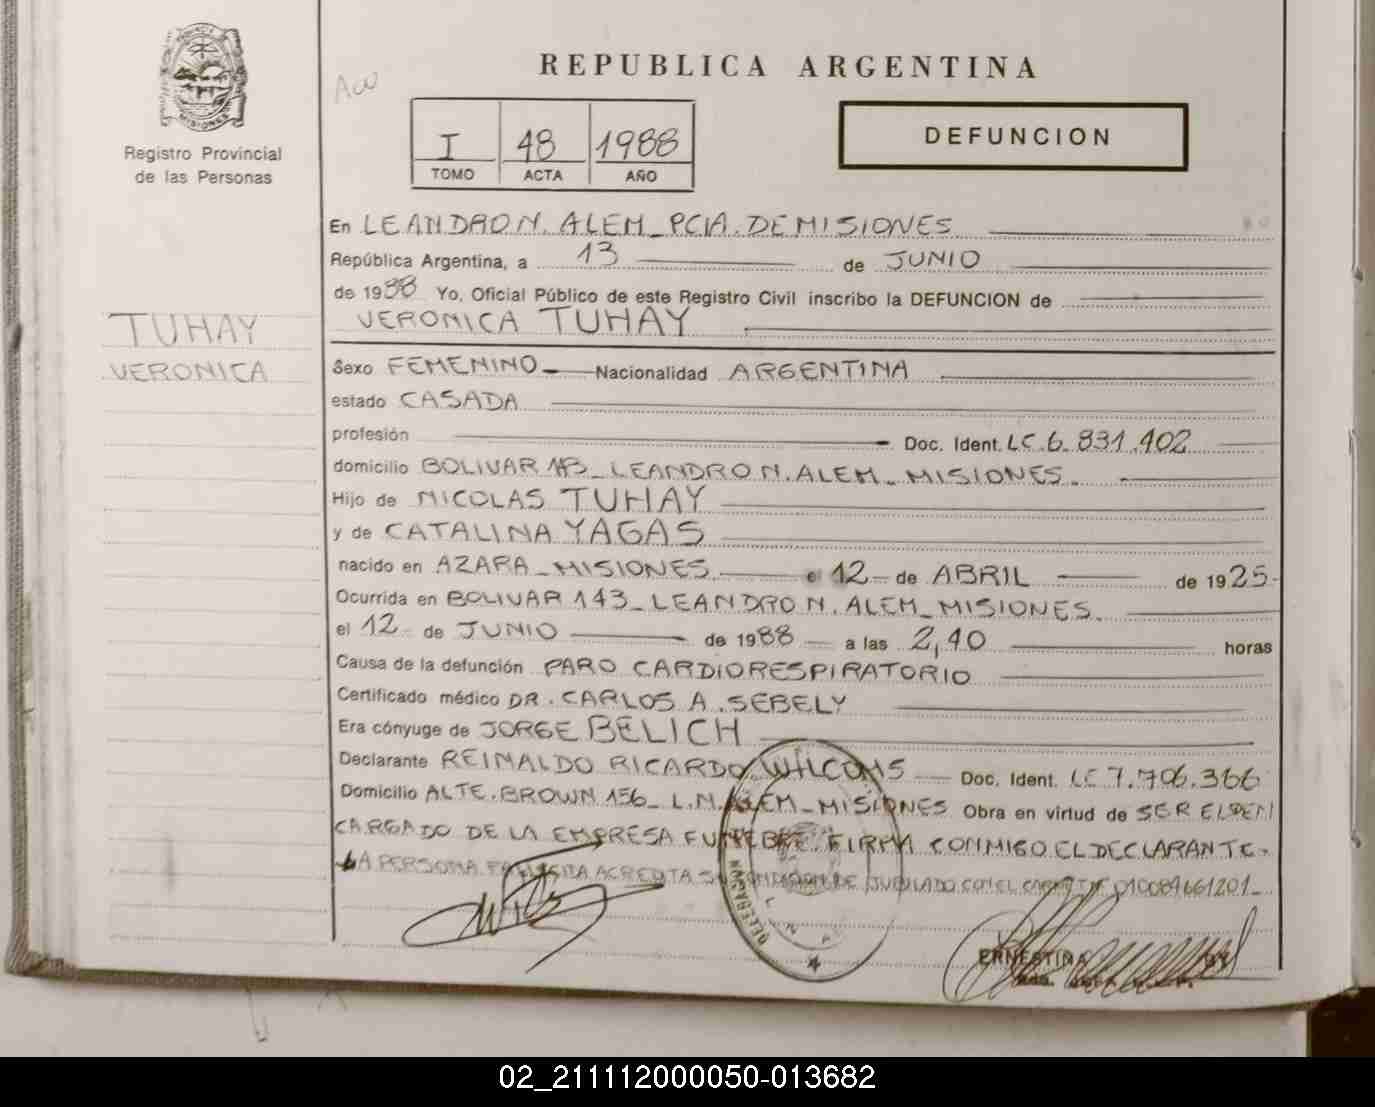 REPUBLICA ARGENTINA
Registro Provincial
de las Personas
I 48 1988
TOMO ACTA AÑO
DEFUNCION
En LEANDRO N. ALEM_PCIA. DE MISIONES
República Argentina, a 13 de JUNIO
de 1988 Yo, Oficial Público de este Registro Civil inscribo la DEFUNCION de
VERONICA TUHAY
TUHAY
VERONICA
Sexo FEMENINO Nacionalidad ARGENTINA
estado CASADA
profesión Doc. Ident. LC.6.831.402
domicilio BOLIVAR 143_LEANDRO N. ALEM_MISIONES.
Hijo de NICOLAS TUHAY
y de CATALINA YAGAS
nacido en AZARA_MISIONES el 12 de ABRIL de 1925
Ocurrida en BOLIVAR 143_LEANDRO N. ALEM_MISIONES.
el 12 de JUNIO de 1988 a las 2,40 horas
Causa de la defunción PARO CARDIORESPIRATORIO
Certificado médico DR. CARLOS A. SEBELY
Era cónyuge de JORGE BELICH
Declarante REINALDO RICARDO Doc. Ident. LC 7.706.366
Domicilio ALTE. BROWN 156_L.N. ALEM_MISIONES Obra en virtud de SER EL ENCARGADO DE LA EMPRESA FUNEBRE. FIRMA CONMIGO EL DECLARANTE.
LA PERSONA FALLECIDA ACREDITA SU CONDICION DE JUBILADO CON EL 
DELEGACION
ERNESTINA
02_211112000050-013682